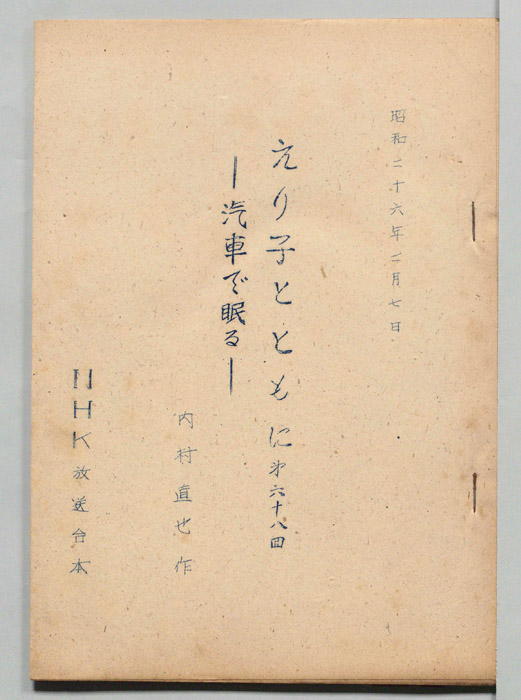 昭和二十六年二月七日
えり子とともに 第六十八回
―汽車で眠る―
内村直也作
NHK放送台本